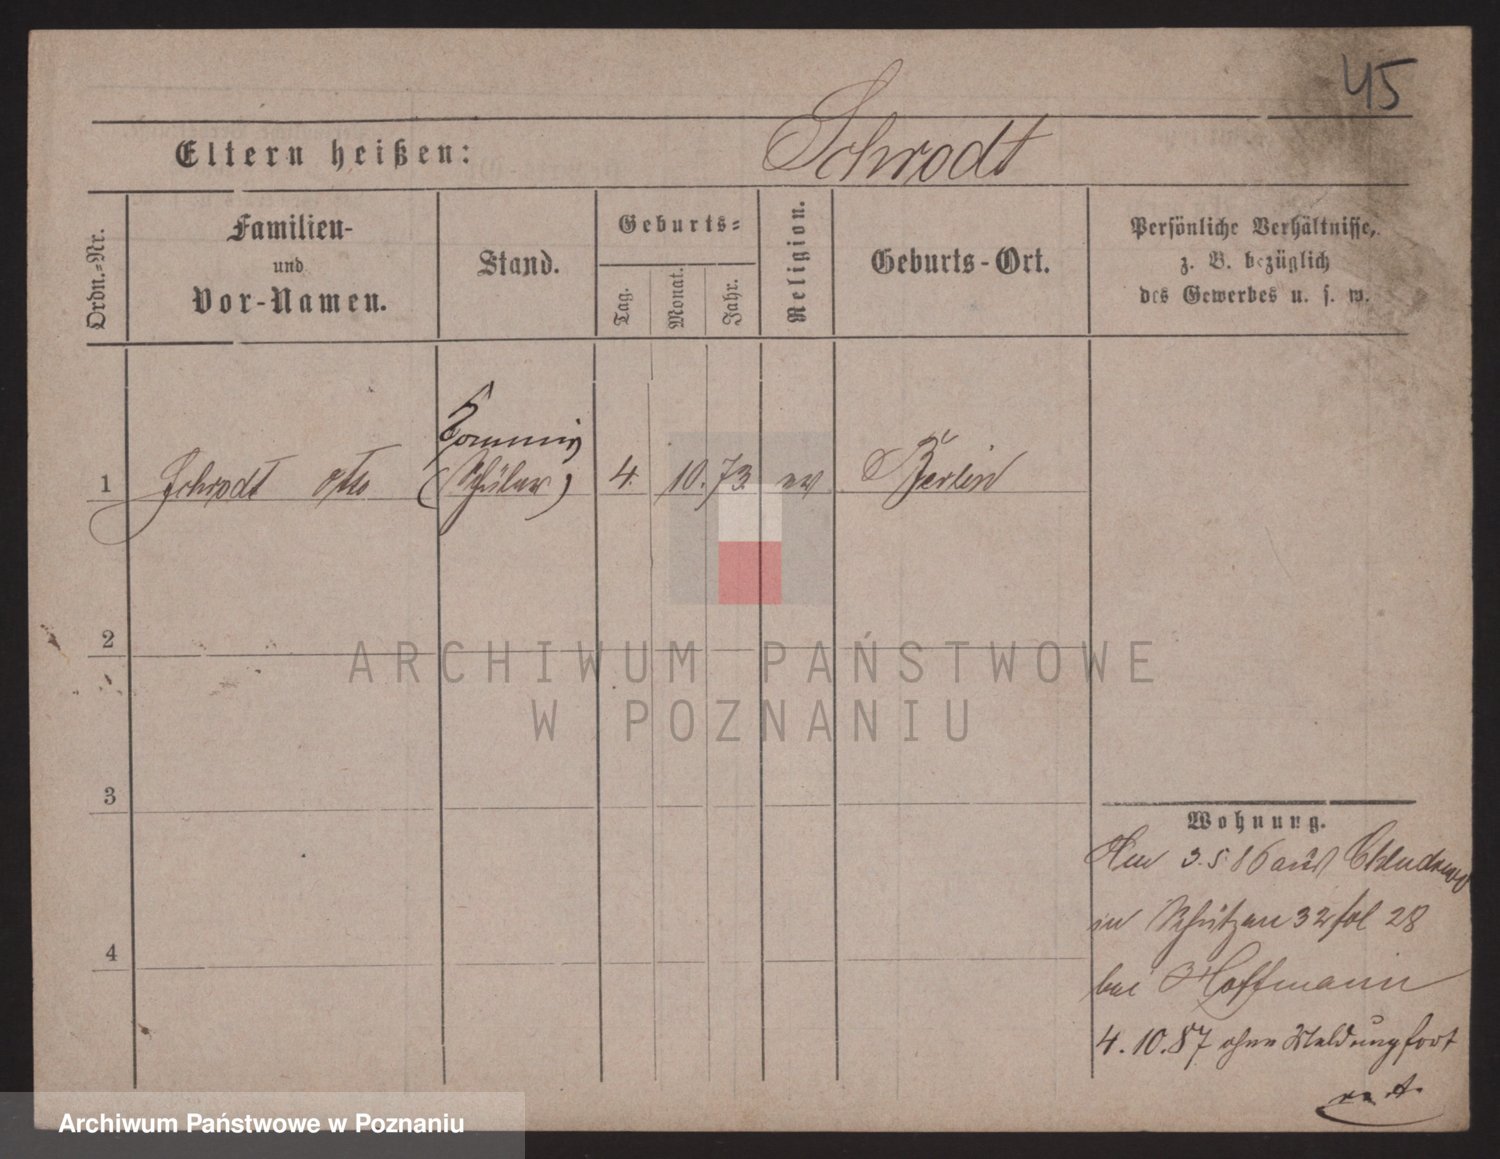 45
Eltern heißen: Schrodt
Ordn.-Nr.
Familien-
und
Vor-Namen.
Stand.
Geburts-
Tag.
Monat.
Jahr.
Religion.
Geburts-Ort.
Persönliche Verhältnisse,
z. B. bezüglich
des Gewerbes u. s. w.
Commis
1 Schrodt Otto (Schüler) 4. 10. 73. ev Berlin
2
3
4
Wohnung.
3.5.86 aus Chludowo
in Schützen 32 fol 28
bei Hoffmann
4.10.87 ohne Meldung fort
ARCHIWUM PAŃSTWOWE
W POZNANIU
Archiwum Państwowe w Poznaniu